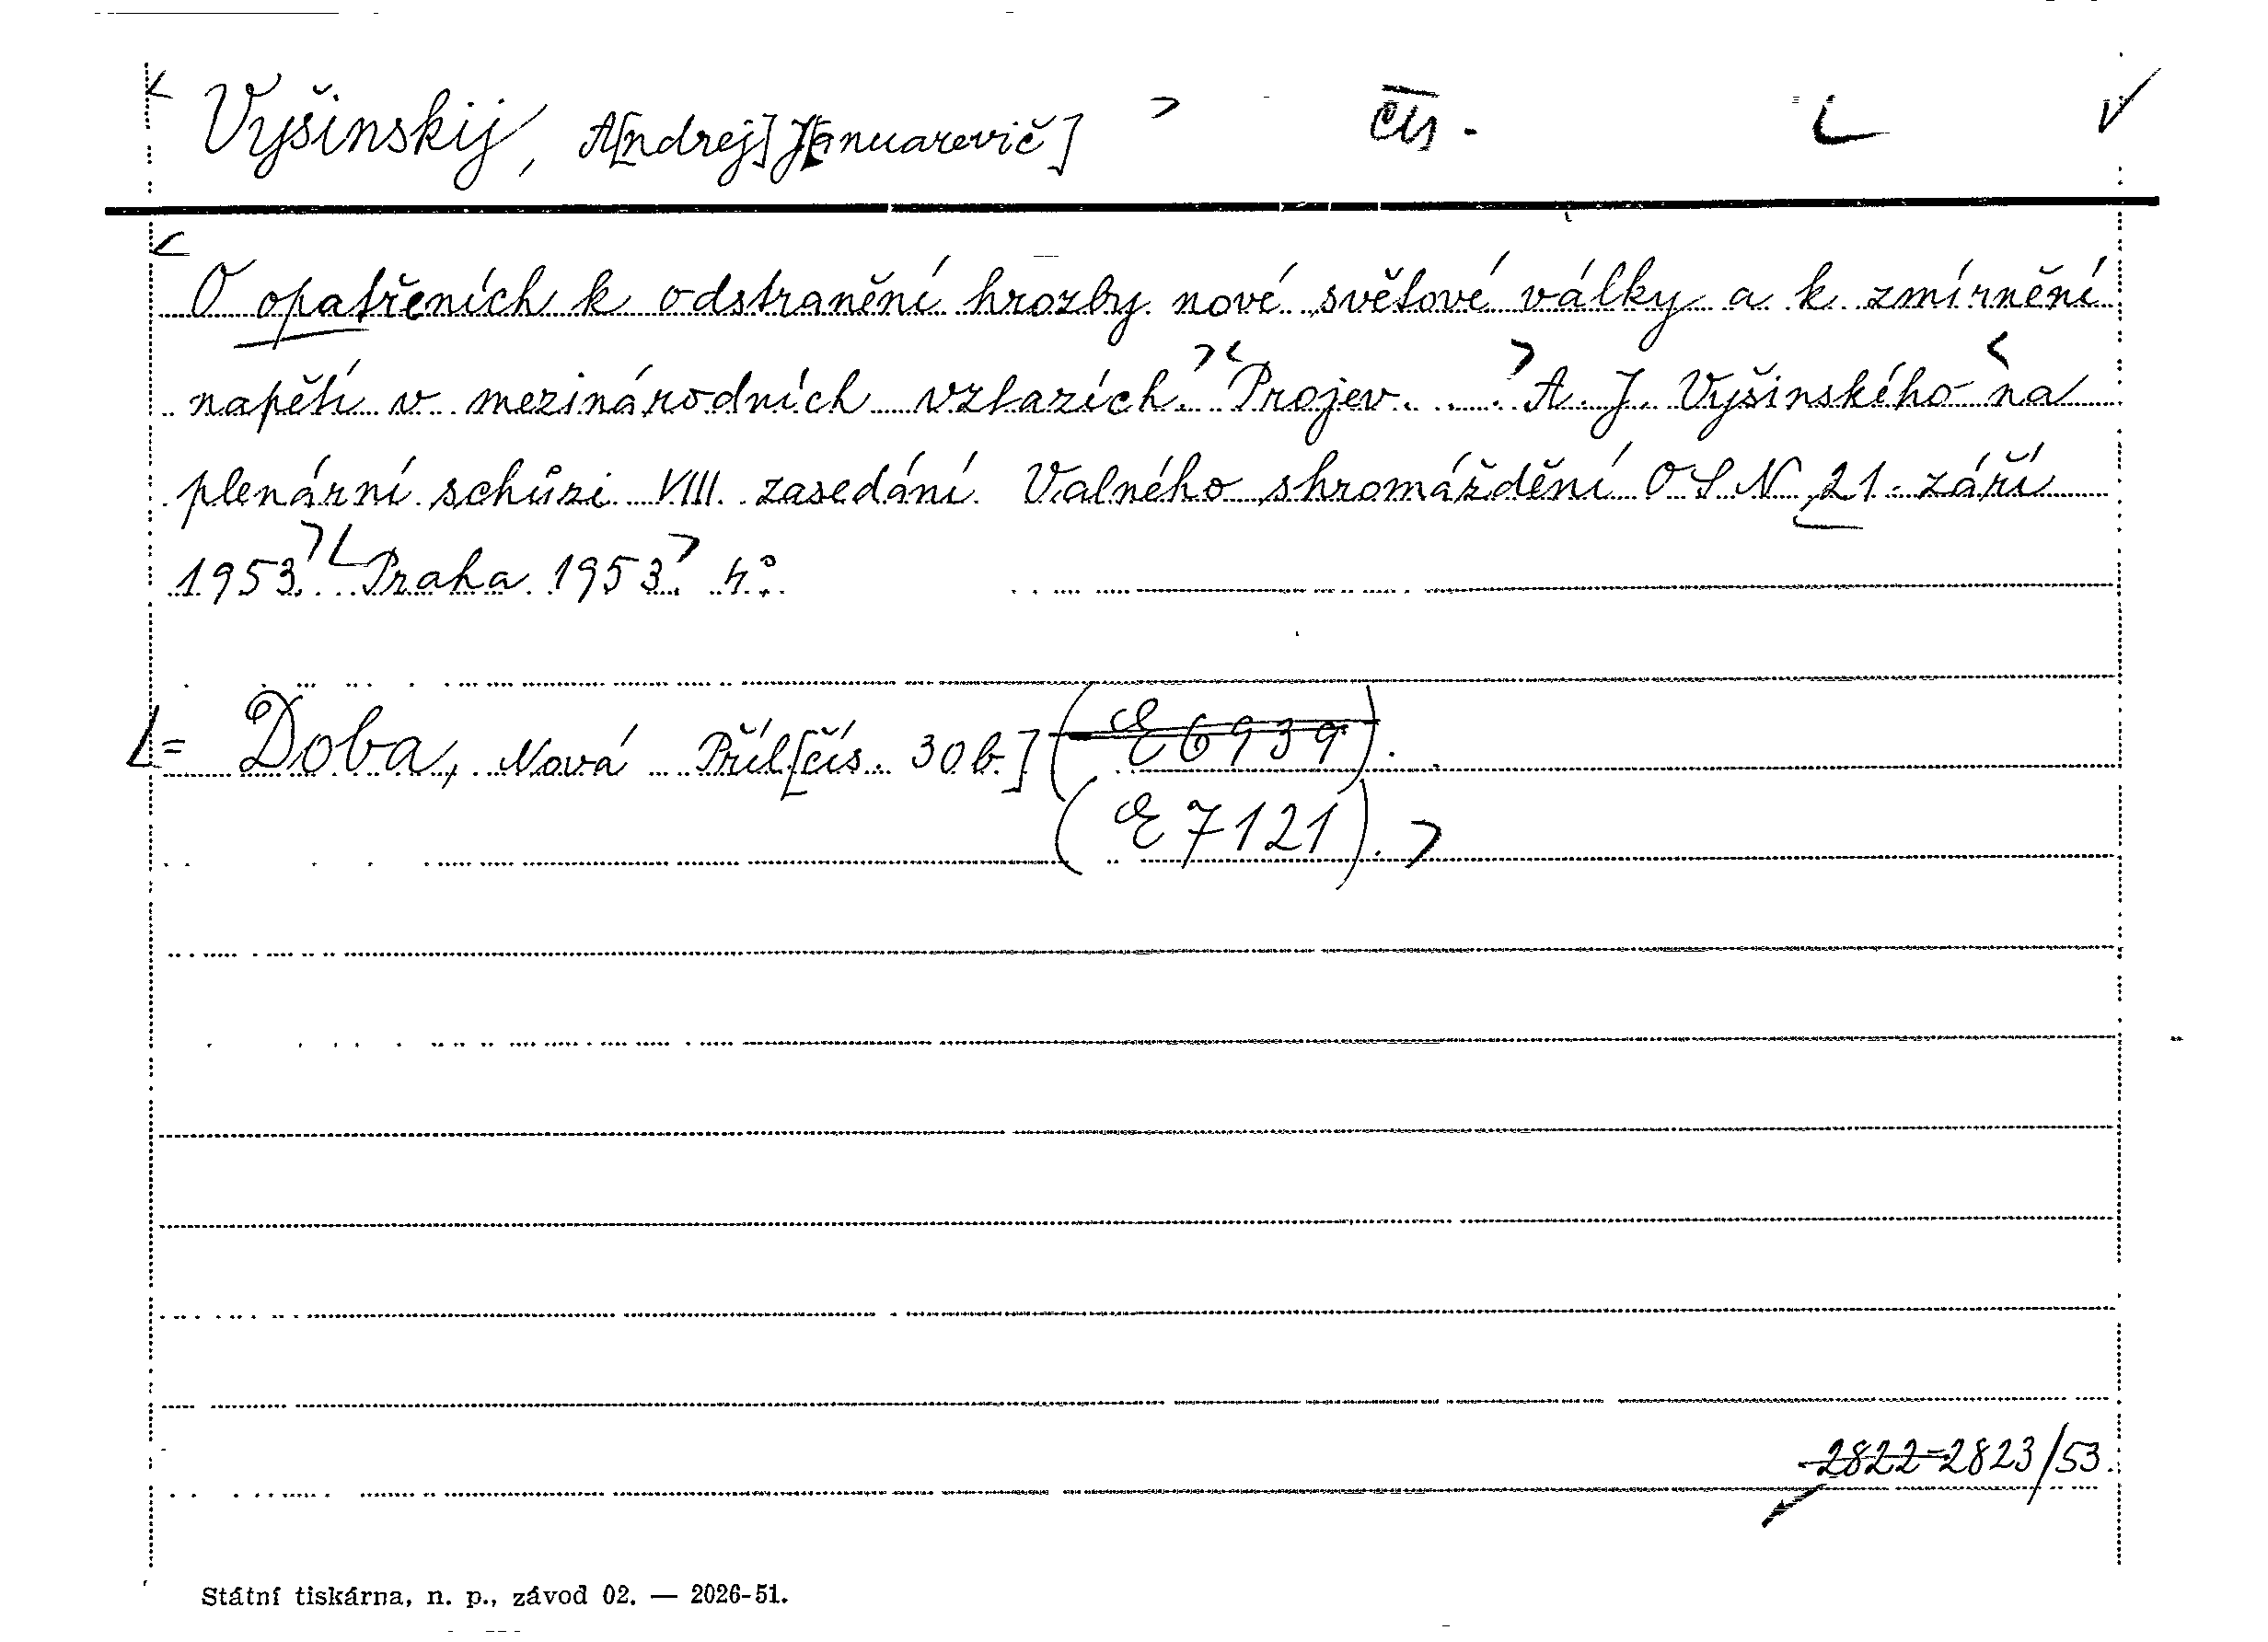 Vyšinskij, A[ndrej] J[anuarevič] čís. L V
O opatřeních k odstranění hrozby nové světové války a k zmírnění
napětí v mezinárodních vztazích. Projev ... A. J. Vyšinského na
plenární schůzi VIII. zasedání Valného shromáždění OSN 21. září
1953. Praha 1953. 4°.
= Doba, Nová Příl[čís. 30b.] (E 6939).
(E 7121).
2822-2823/53.
Státní tiskárna, n. p., závod 02. — 2026-51.